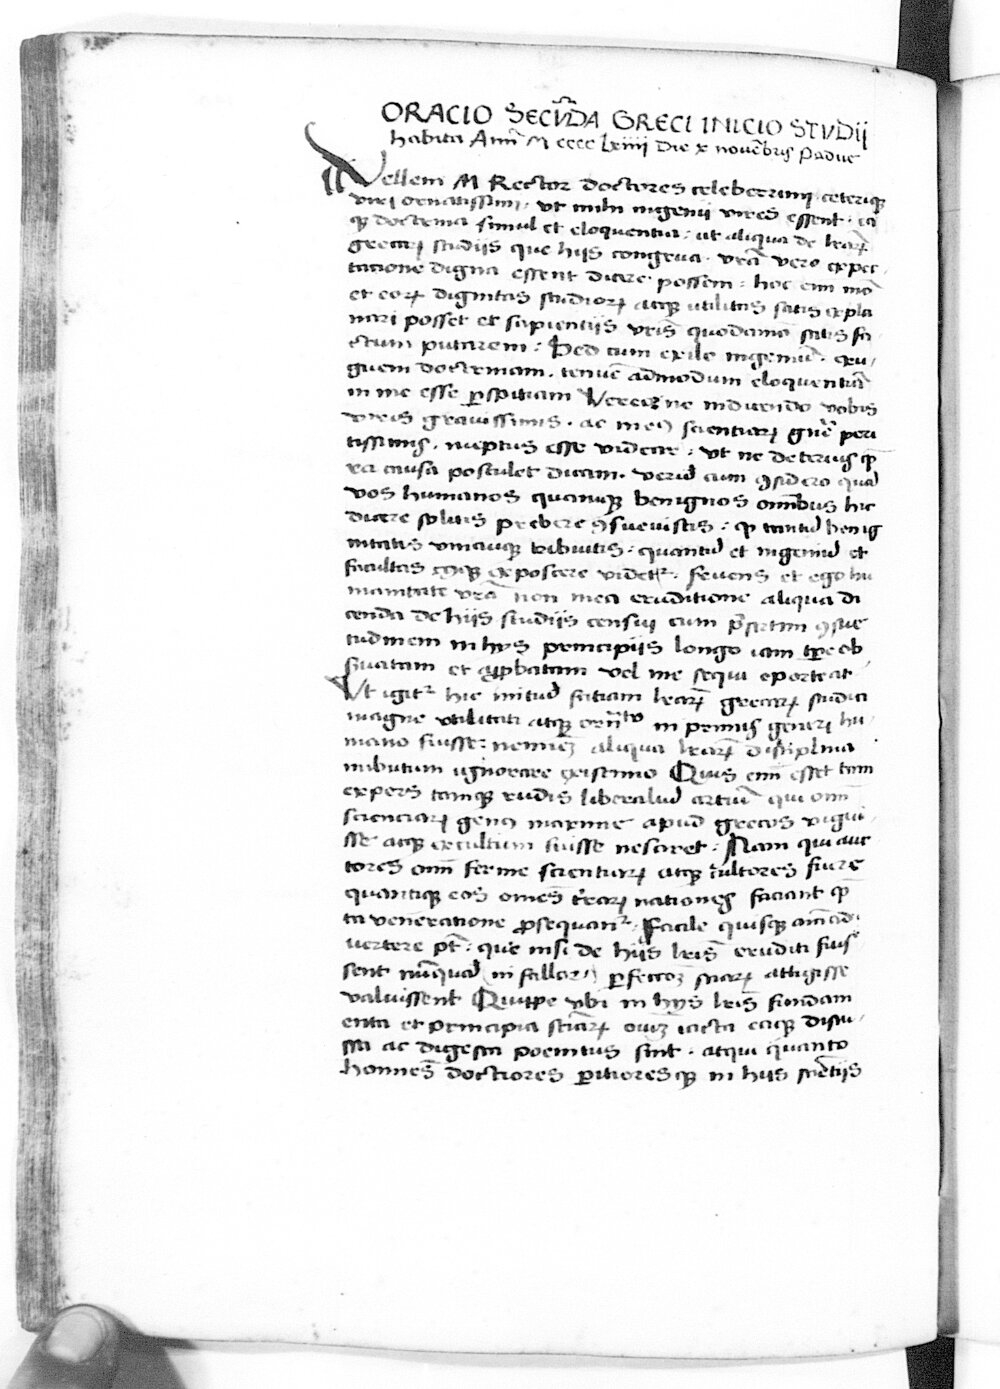 ORACIO SECV̅DA GRECI INICIO STVDII
habita Anni̅ M cccc lxiiii Die x nove̅bris Padue
Vellem M Rector doctores celeberrimi ceterique
viri ornatissimi, ut mihi ingenii vires essent ea
qꝫ doctrina simul et eloquentia, ut aliqua de lr̅arꝝ
grecarꝝ studiis que hiis congrua vr̅a vero expec-
tacione digna essent dicere possem: hoc eni̅ mo̅
et eorꝝ dignitas studiorꝝ atqꝫ utilitas satis expla
nari posset et sapientiis vr̅is quodamo̅ satis fa
ctum putarem: Sed cum exile ingeniu̅, exi-
guem doctrinam, tenue̅ admodum eloquentia̅
in me esse ꝑspitiam Vereor ne induendo vobis
viris gravissimis, ac meꝰ scientiarꝝ gn̅e peri
tissimis, ineptus esse videar, ut ne deterius qꝫ
rei causa postulet dicam. Veru̅ cum ꝯsidero quā
vos humanos quamqꝫ benignos omnibus hic
dicere solitis prebere ꝯsuevistis: qꝫ tantu̅ benig
nitatis unicuiqꝫ tribuitis, quantu̅ et ingeniu̅ et
facultas cuiqꝫ exposcere videtꝛ. fevens et ego hu
manitate vr̅a non mea eruditione aliqua di
cenda de hiis studiis censui cum pr̅sertim ꝯsue
tudinem in hys principiis longo iam tp̅re ob
servatam et aꝓbatam vel me sequi oporteat
Ut igitꝛ hic initiu̅ satiam lr̅arꝝ grecarꝝ studia
magne utilitati atqꝫ orn̅to in primis generi hu-
mano fuisse: neminē aliqua lr̅arꝝ disciplina
imbutum ignorare existimo Quis eni̅ esset tam
expers tamqꝫ rudis liberaliu̅ artiu̅ qui omn̅
scienciarꝝ genꝰ maxime apud grecos vigui-
sse atqꝫ excultum fuisse nesciret: Nam qui auc
tores omn̅ ferme scientiarꝝ atqꝫ cultores fuere
quantique eos omes̅ terrarꝝ nationes faciant qꝫ
ta veneratione ꝓsequantꝛ, Facile quisqꝫ anīad-
vertere pt̅: que nisi de hiis lr̅is eruditi fuis
sent nu̅quā (ni fallor) ꝑfectoꝫ sciarꝝ attigisse
valuissent Quippe ubi in hys lr̅is fundam
enta et principia sciarꝝ oniꝫ iacta eaqꝫ discu-
ssa ac digesta poenitus sint, atqui quanto
homines̅ doctiores ꝑitioresqꝫ in hiis scientiis